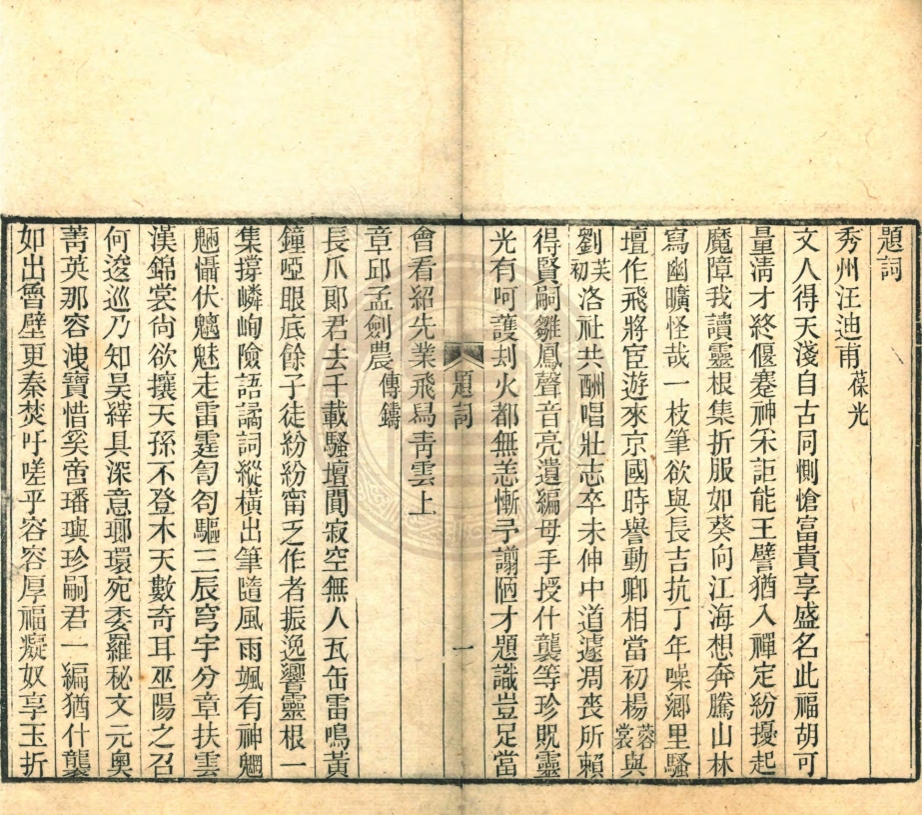 題詞
秀州汪迪甫葆光
文人得天淺自古同惻愴富貴享盛名此福胡可
量淸才終偃蹇神釆詎能王譬猶入禪定紛擾起
魔障我讀靈根集折服如葵向江海想奔騰山林
寫幽曠怪哉一枝筆欲與長吉抗丁年噪鄉里騷
壇作飛將宦遊來京國時譽動卿相當初楊蓉裳與
劉芙初洛社共酬唱壯志卒未伸中道遽凋喪所賴
得賢嗣雛鳳聲音亮遺編母手授什襲等珍貺靈
光有呵護刦火都無恙慚予謭陋才題識豈足當
會看紹先業飛舄靑雲上
題詞
一
章邱孟劍農傳鑄
長爪郞君去千載騷壇闃寂空無人瓦缶雷鳴黃
鐘啞眼底餘子徒紛紛甯乏作者振逸響靈根一
集撐嶙峋險語譎詞縱橫出筆隨風雨颯有神魍
魎懾伏魑魅走雷霆訇訇驅三辰穹宇分章扶雲
漢錦裳尙欲攘天孫不登木天數奇耳巫陽之召
何逡巡乃知昊縡具深意瑯環宛委羅秘文元奧
菁英那容洩寶惜奚啻璠璵珍嗣君一編猶什襲
如出魯壁更秦焚吁嗟乎容容厚福癡奴享玉折